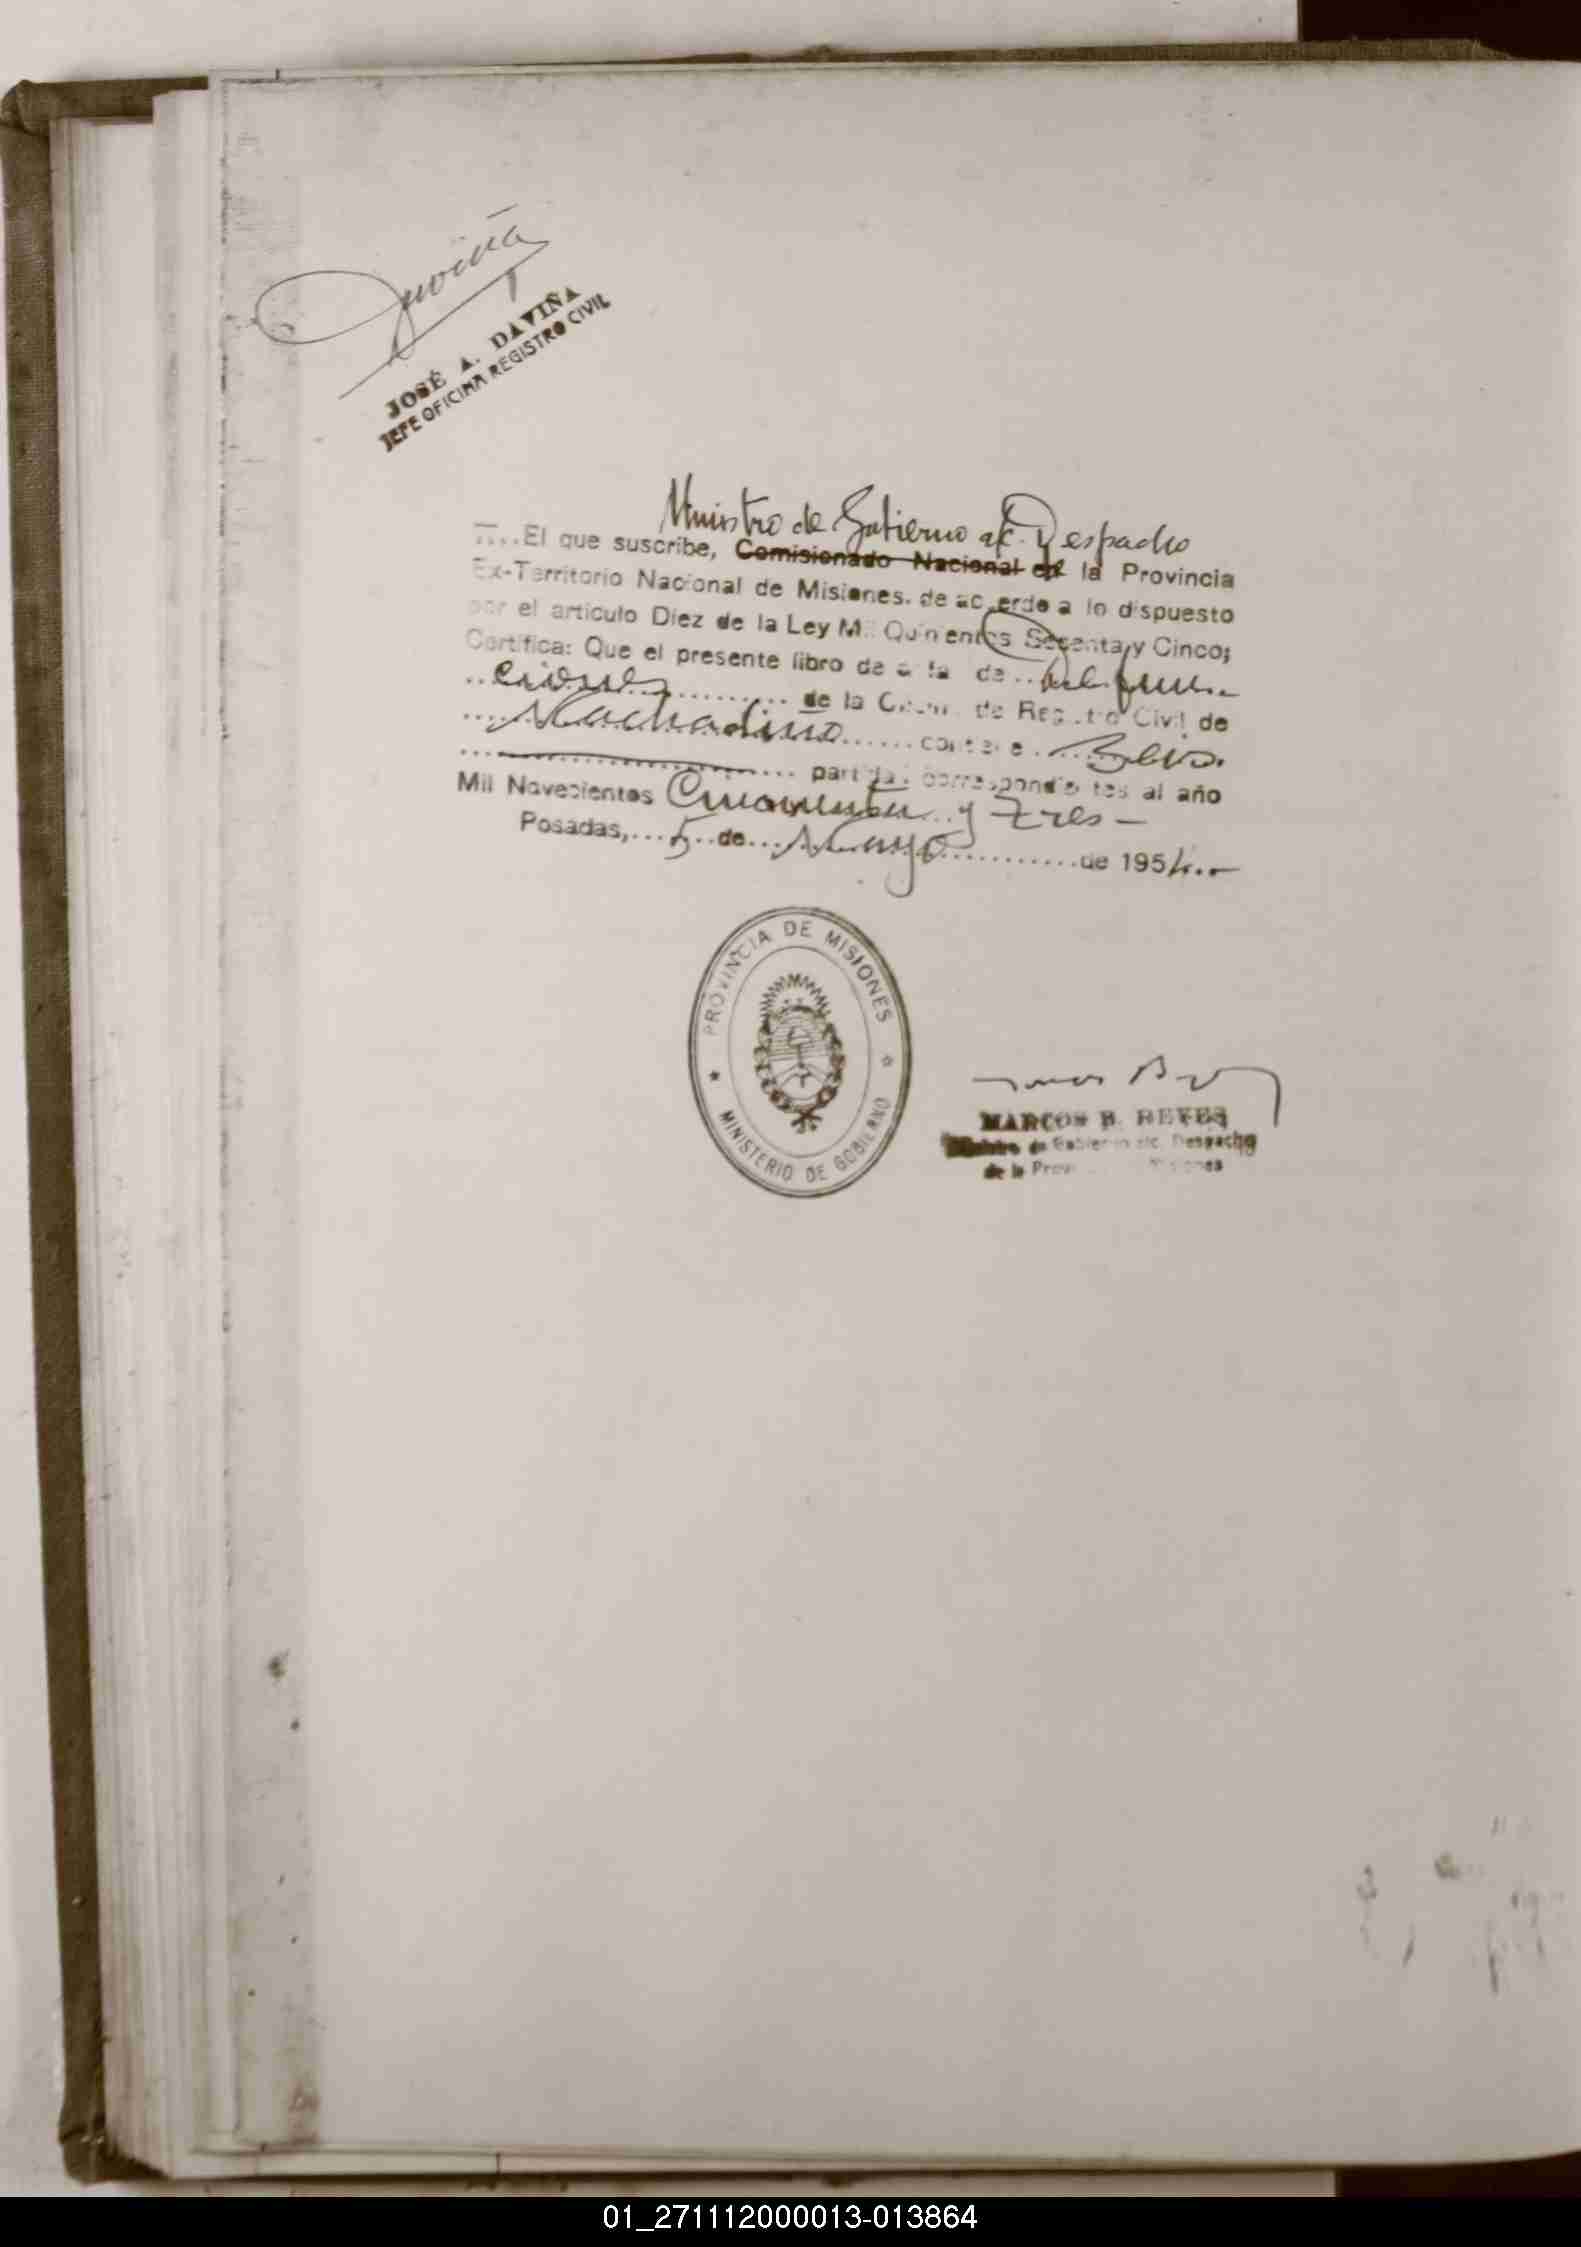 Daviña
JOSÉ A. DAVIÑA
JEFE OFICINA REGISTRO CIVIL
Ministro de Gobierno a/c. Despacho
....El que suscribe, Comisionado Nacional en la Provincia
Ex-Territorio Nacional de Misiones, de acuerdo a lo dispuesto
por el artículo Diez de la Ley Mil Quinientos Sesenta y Cinco;
Certifica: Que el presente libro de acta de.. defun-
..ciones............ de la Oficina de Registro Civil de
.....Machadinho...... contiene....
.................... partidas correspondientes al año
Mil Novecientos Cincuenta y Tres -
Posadas,....5..de...Mayo............de 1954..-
PROVINCIA DE MISIONES
MINISTERIO DE GOBIERNO
MARCOS B. REYES
Ministro de Gobierno a/c. Despacho
de la Provincia de Misiones
01_271112000013-013864